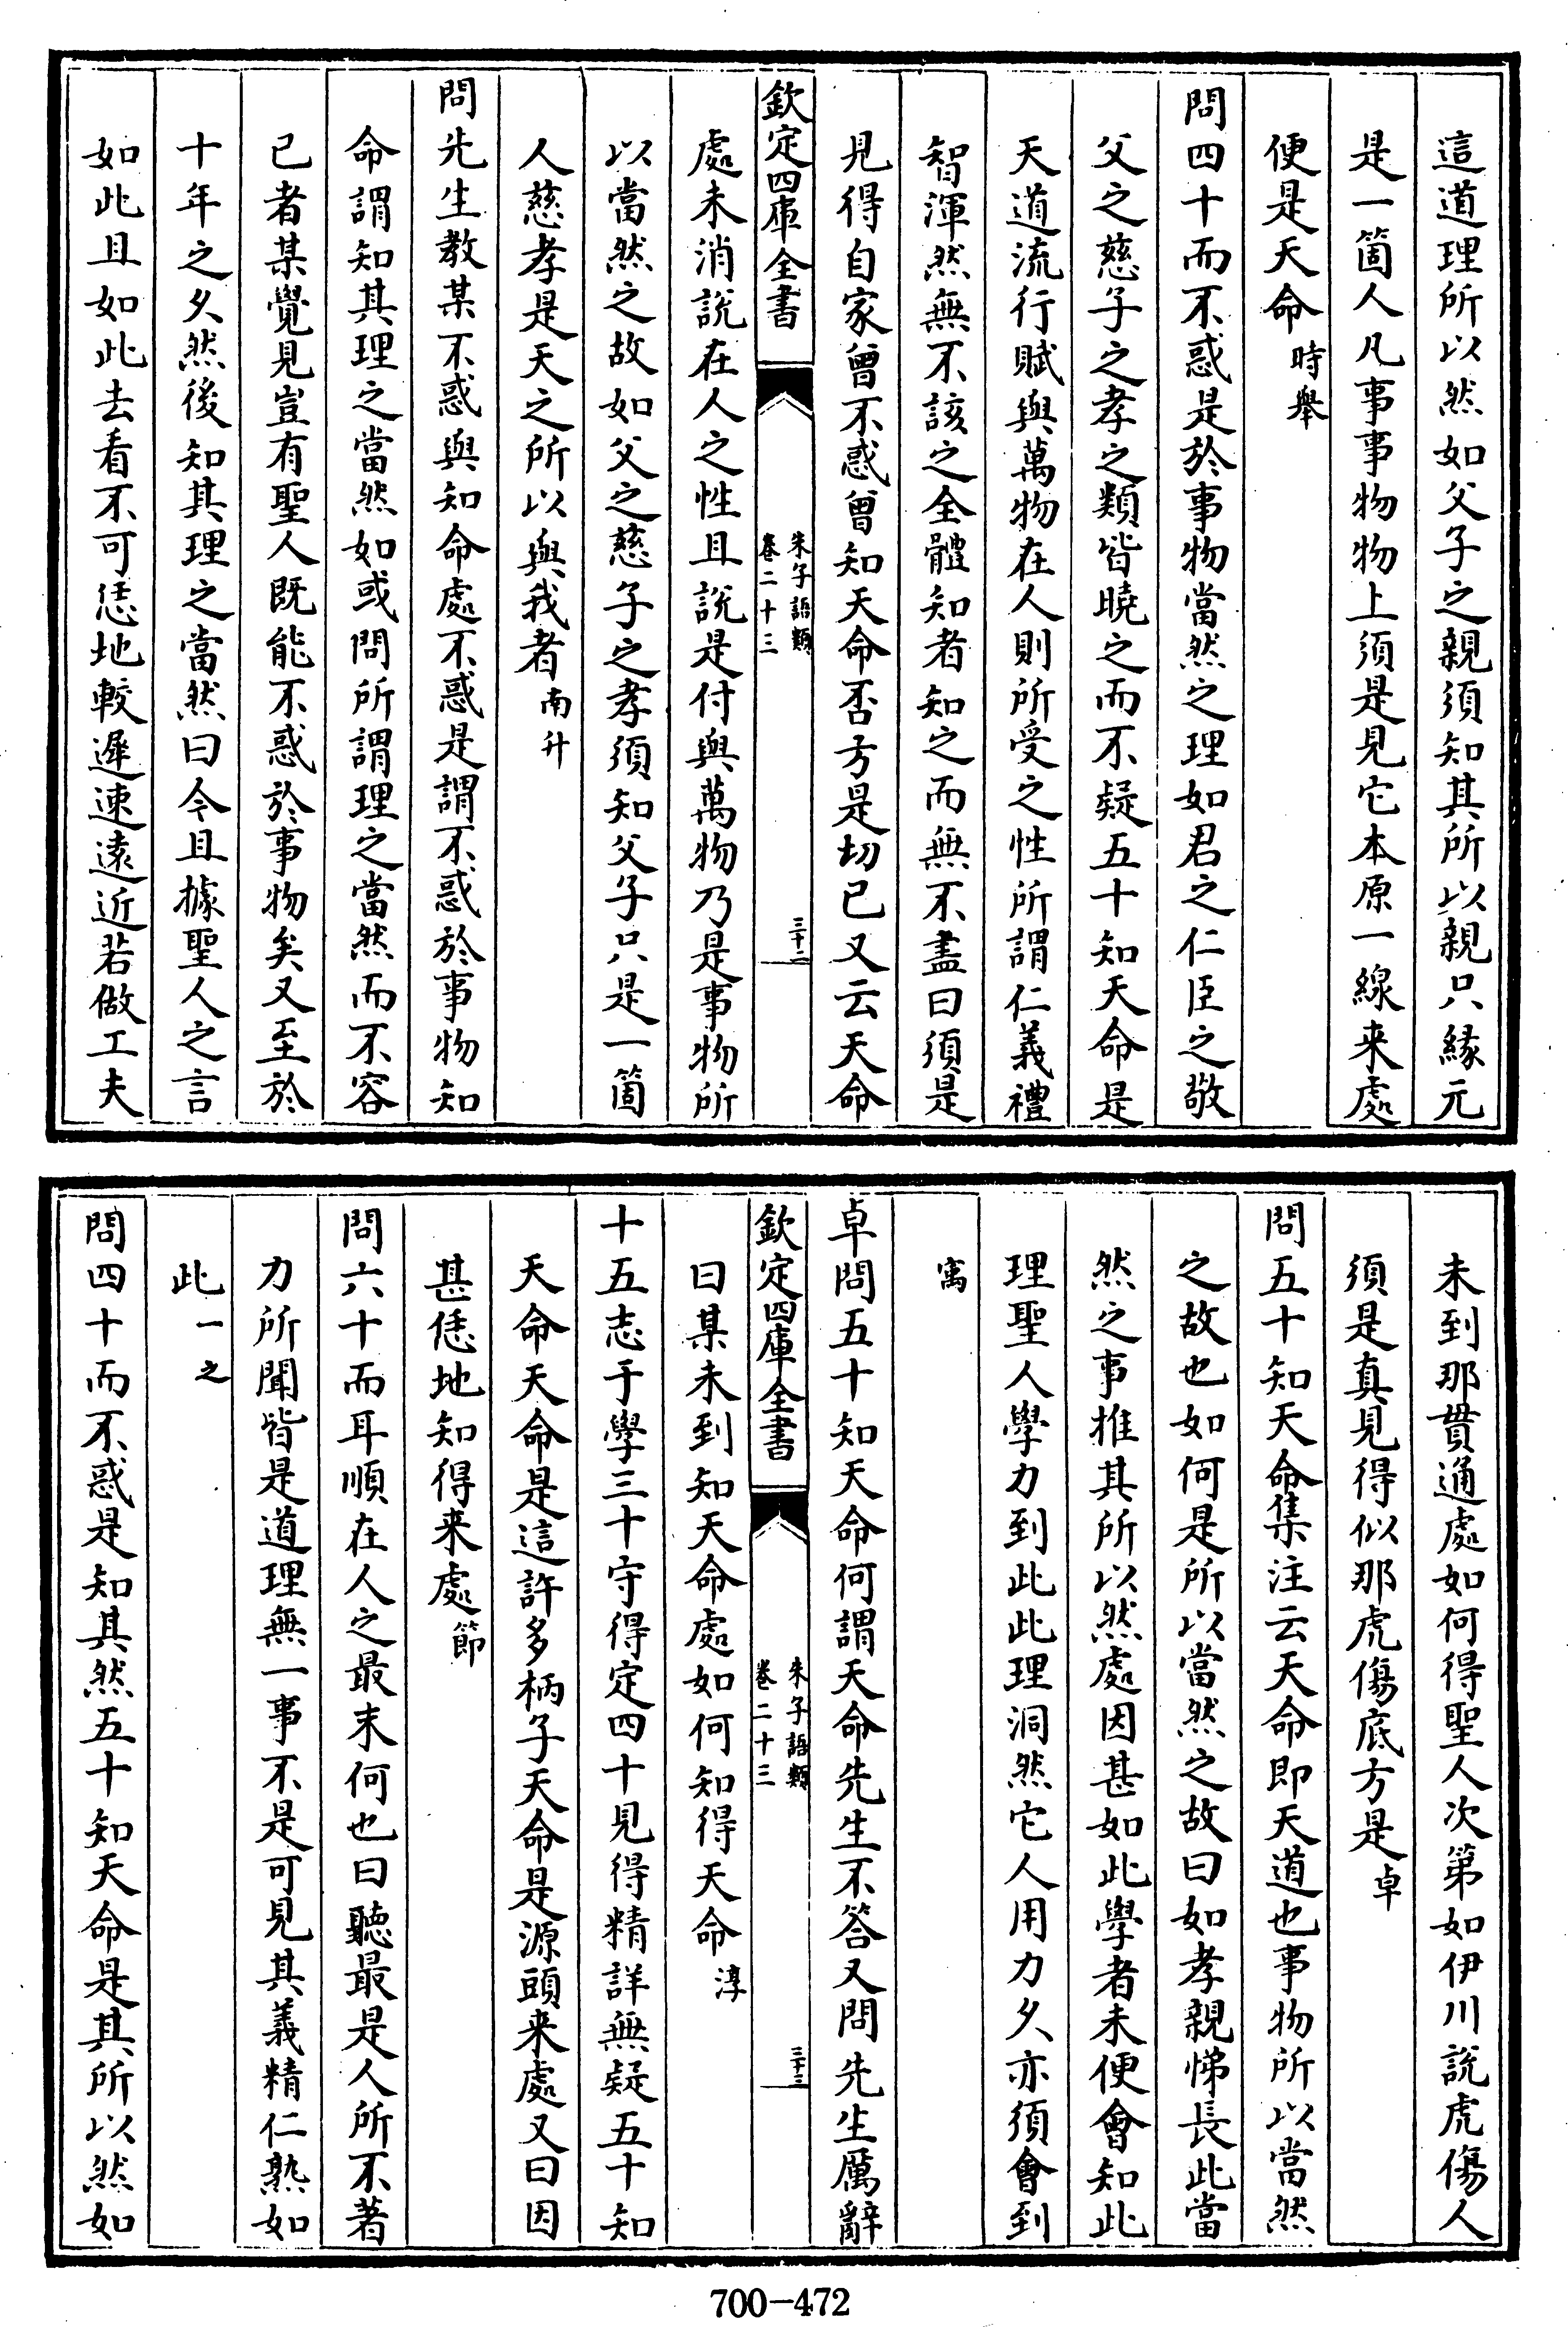 這道理所以然如父子之親須知其所以親只緣元
是一箇人凡事事物物上須是見它本原一線来處
便是天命時舉
問四十而不惑是於事物當然之理如君之仁臣之敬
父之慈子之孝之類皆曉之而不疑五十知天命是
天道流行賦與萬物在人則所受之性所謂仁義禮
智渾然無不該之全體知者知之而無不盡曰須是
見得自家曾不惑曾知天命否方是切已又云天命
欽定四庫全書
朱子語類
卷二十三
三十二
處未消說在人之性且說是付與萬物乃是事物所
以當然之故如父之慈子之孝須知父子只是一箇
人慈孝是天之所以與我者南升
問先生教某不惑與知命處不惑是謂不惑於事物知
命謂知其理之當然如或問所謂理之當然而不容
已者某覺見豈有聖人既能不惑於事物矣又至於
十年之久然後知其理之當然曰今且據聖人之言
如此且如此去看不可恁地較遲速遠近若做工夫
未到那貫通處如何得聖人次第如伊川說虎傷人
須是真見得似那虎傷底方是卓
問五十知天命集注云天命即天道也事物所以當然
之故也如何是所以當然之故曰如孝親悌長此當
然之事推其所以然處因甚如此學者未便會知此
理聖人學力到此此理洞然它人用力久亦須會到
㝢
卓問五十知天命何謂天命先生不答又問先生厲辭
欽定四庫全書
朱子語類
卷二十三
三十三
曰某未到知天命處如何知得天命淳
十五志于學三十守得定四十見得精詳無疑五十知
天命天命是這許多柄子天命是源頭来處又曰因
甚恁地知得来處節
問六十而耳順在人之最末何也曰聽最是人所不著
力所聞皆是道理無一事不是可見其義精仁熟如
此一之
問四十而不惑是知其然五十知天命是其所以然如
700-472